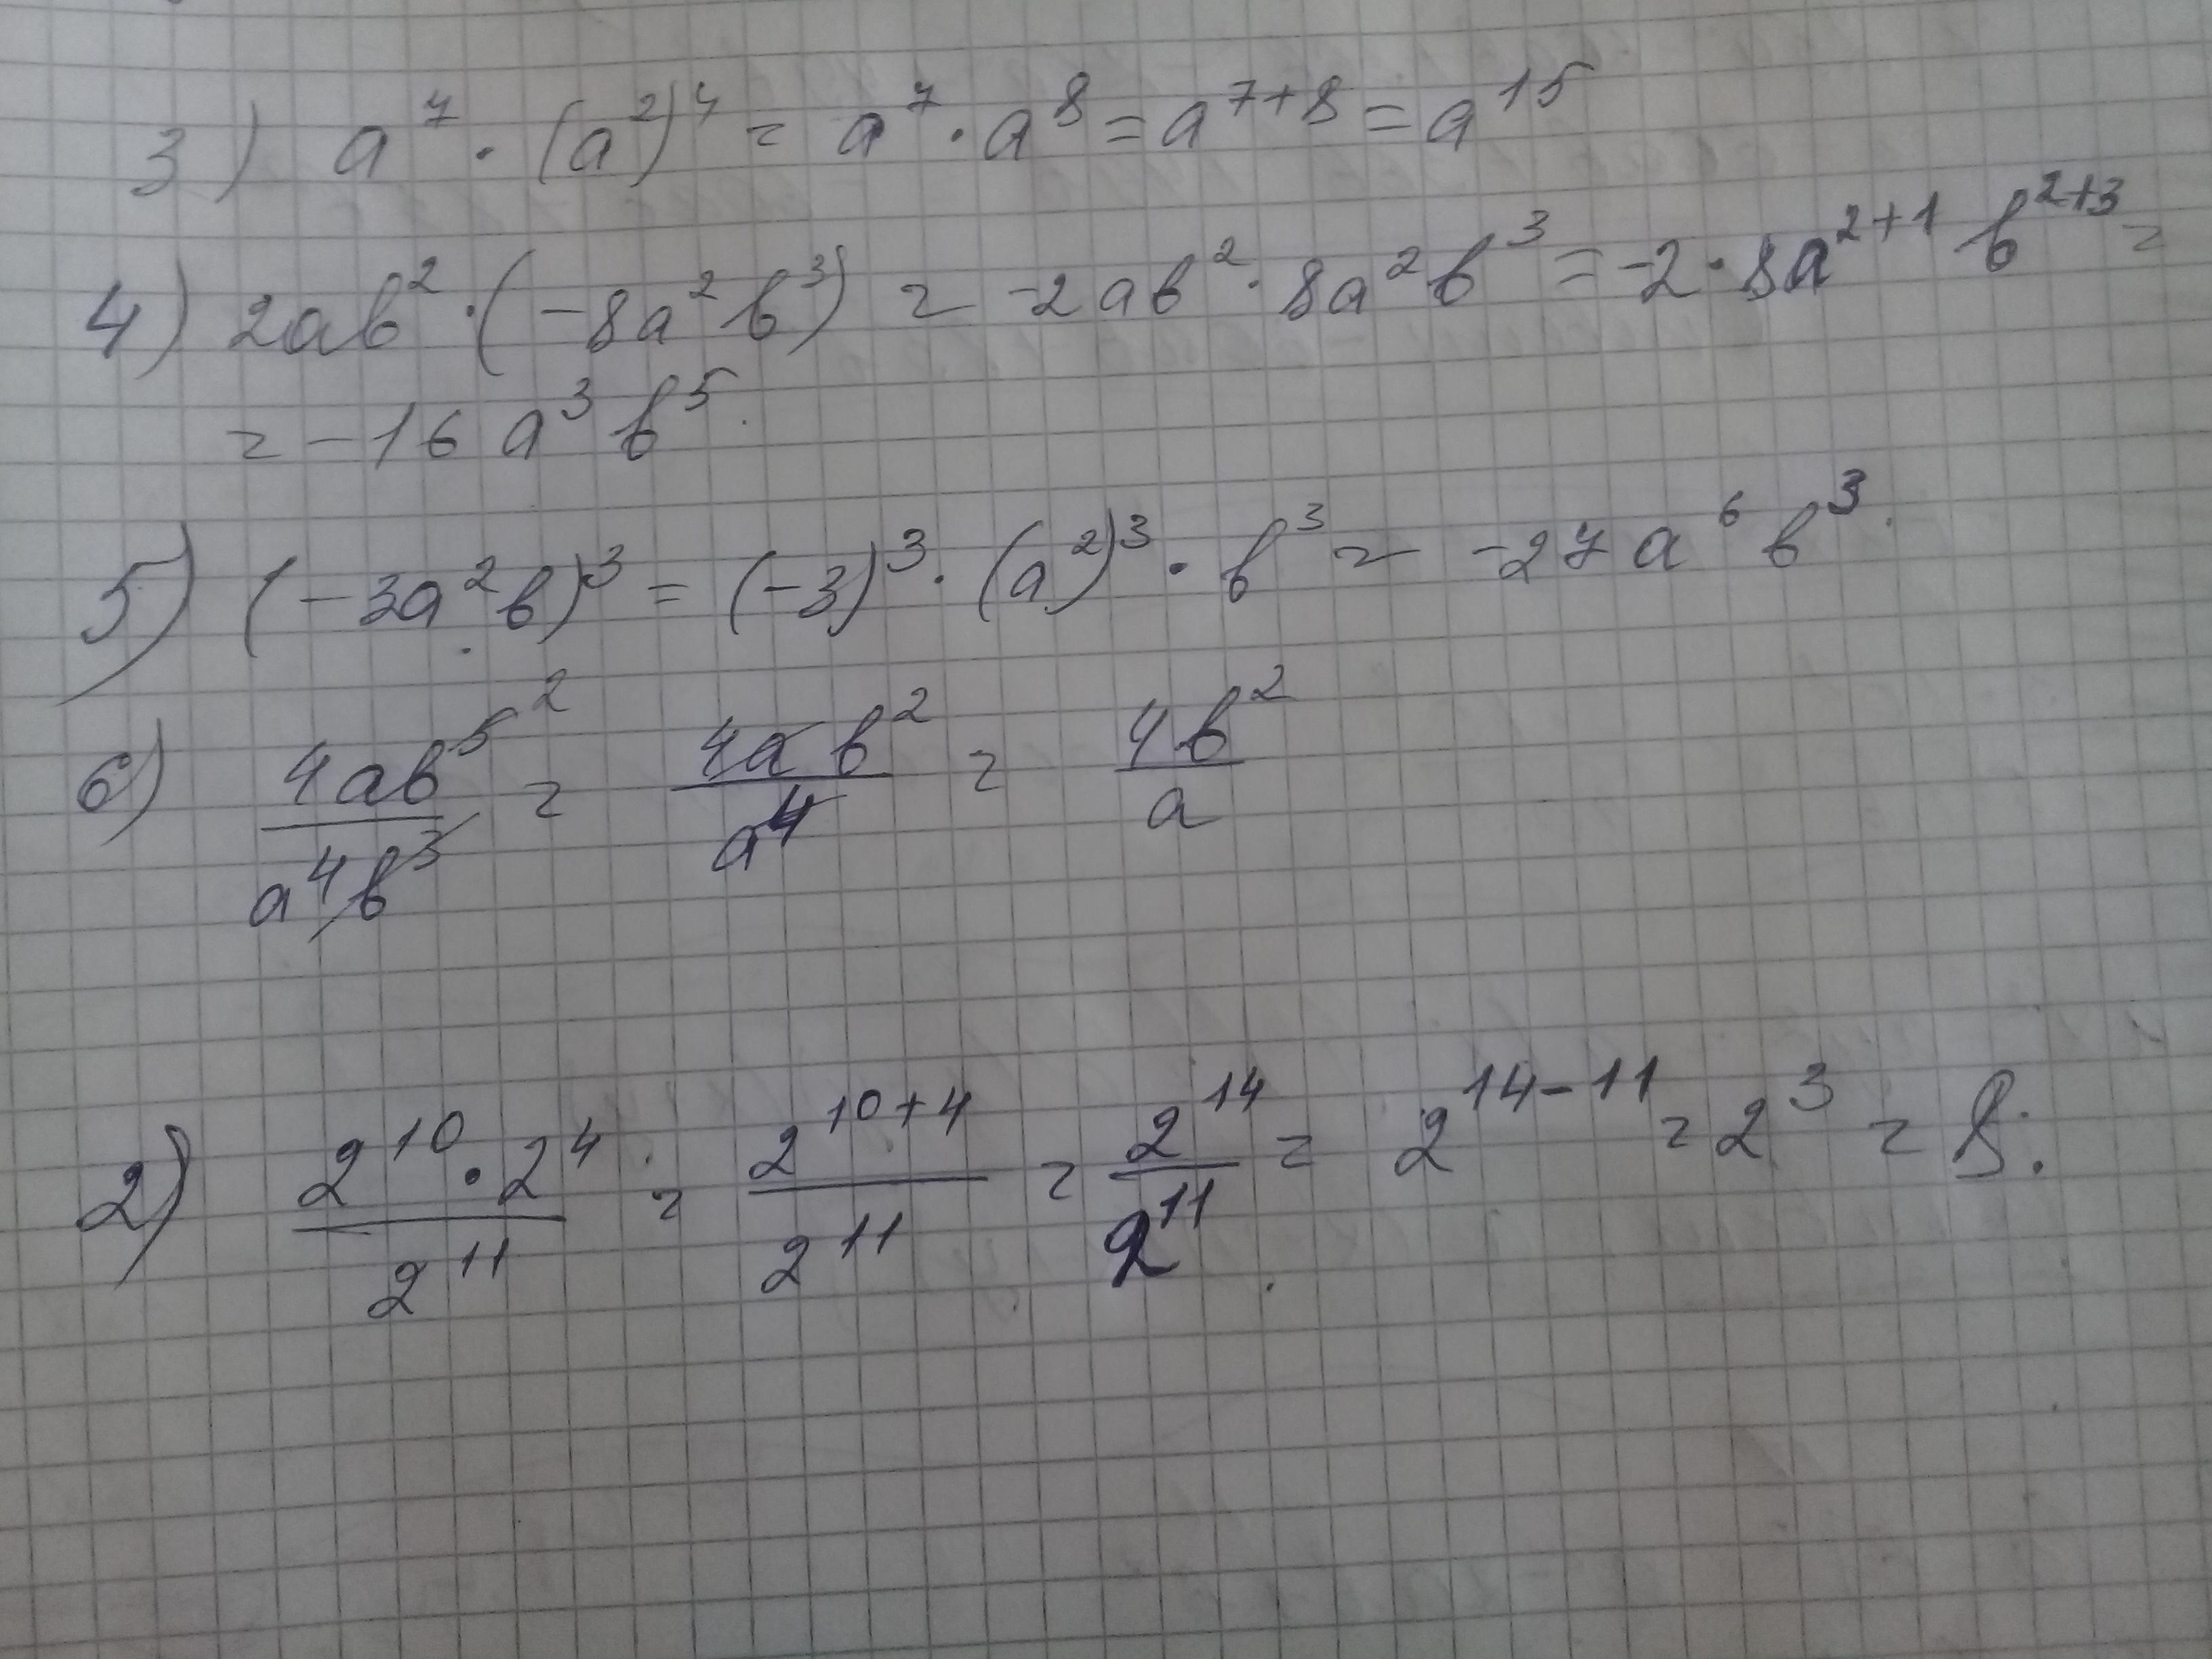 3) a⁷ · (a²)⁴ = a⁷ · a⁸ = a⁷⁺⁸ = a¹⁵
4) 2ab² · (-8a²b³) = -2ab² · 8a²b³ = -2 · 8a²⁺¹ b²⁺³ =
= -16 a³ b⁵.
5) (-3a²b)³ = (-3)³ · (a²)³ · b³ = -27 a⁶ b³.
6) 4ab⁵ ² / a⁴b³ = 4a b² / a⁴ = 4b² / a
2) 2¹⁰ · 2⁴ / 2¹¹ = 2¹⁰⁺⁴ / 2¹¹ = 2¹⁴ / 2¹¹ = 2¹⁴⁻¹¹ = 2³ = 8.